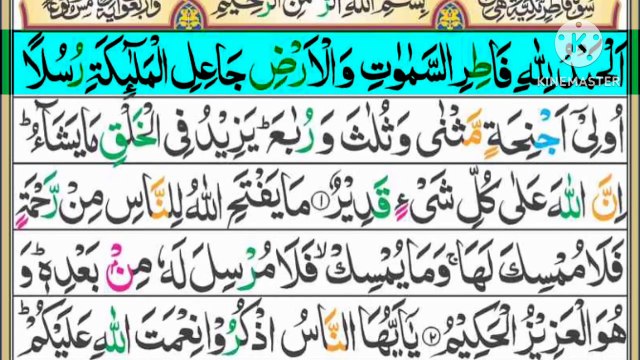 سورة فاطر مكية وهى
بسم الله الرحمن الرحيم
KINEMASTER
اَلْحَمْدُ لِلّٰهِ فَاطِرِ السَّمٰوٰتِ وَالْاَرْضِ جَاعِلِ الْمَلٰٓئِكَةِ رُسُلًا
اُولِیْۤ اَجْنِحَةٍ مَّثْنٰی وَثُلٰثَ وَرُبٰعَ ؕ یَزِیْدُ فِی الْخَلْقِ مَا یَشَآءُ ؕ
اِنَّ اللّٰهَ عَلٰی كُلِّ شَیْءٍ قَدِیْرٌ ۝۱ مَا یَفْتَحِ اللّٰهُ لِلنَّاسِ مِنْ رَّحْمَةٍ
فَلَا مُمْسِكَ لَهَا ۚ وَمَا یُمْسِكْ ۙ فَلَا مُرْسِلَ لَهٗ مِنْۢ بَعْدِهٖ ؕ وَ
هُوَ الْعَزِیْزُ الْحَكِیْمُ ۝۲ یٰۤاَیُّهَا النَّاسُ اذْكُرُوْا نِعْمَتَ اللّٰهِ عَلَیْكُمْ ؕ